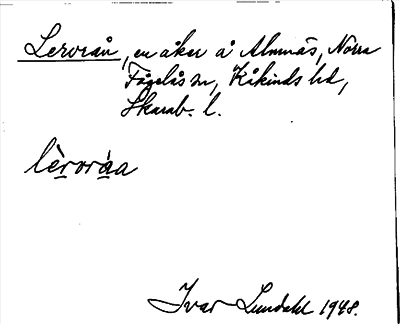 Lerorån, en åker å Almnäs, Norra
Fågelås sn, Kåkinds hd,
Skarab. l.
lèroråa
Ivar Lundahl 1948.